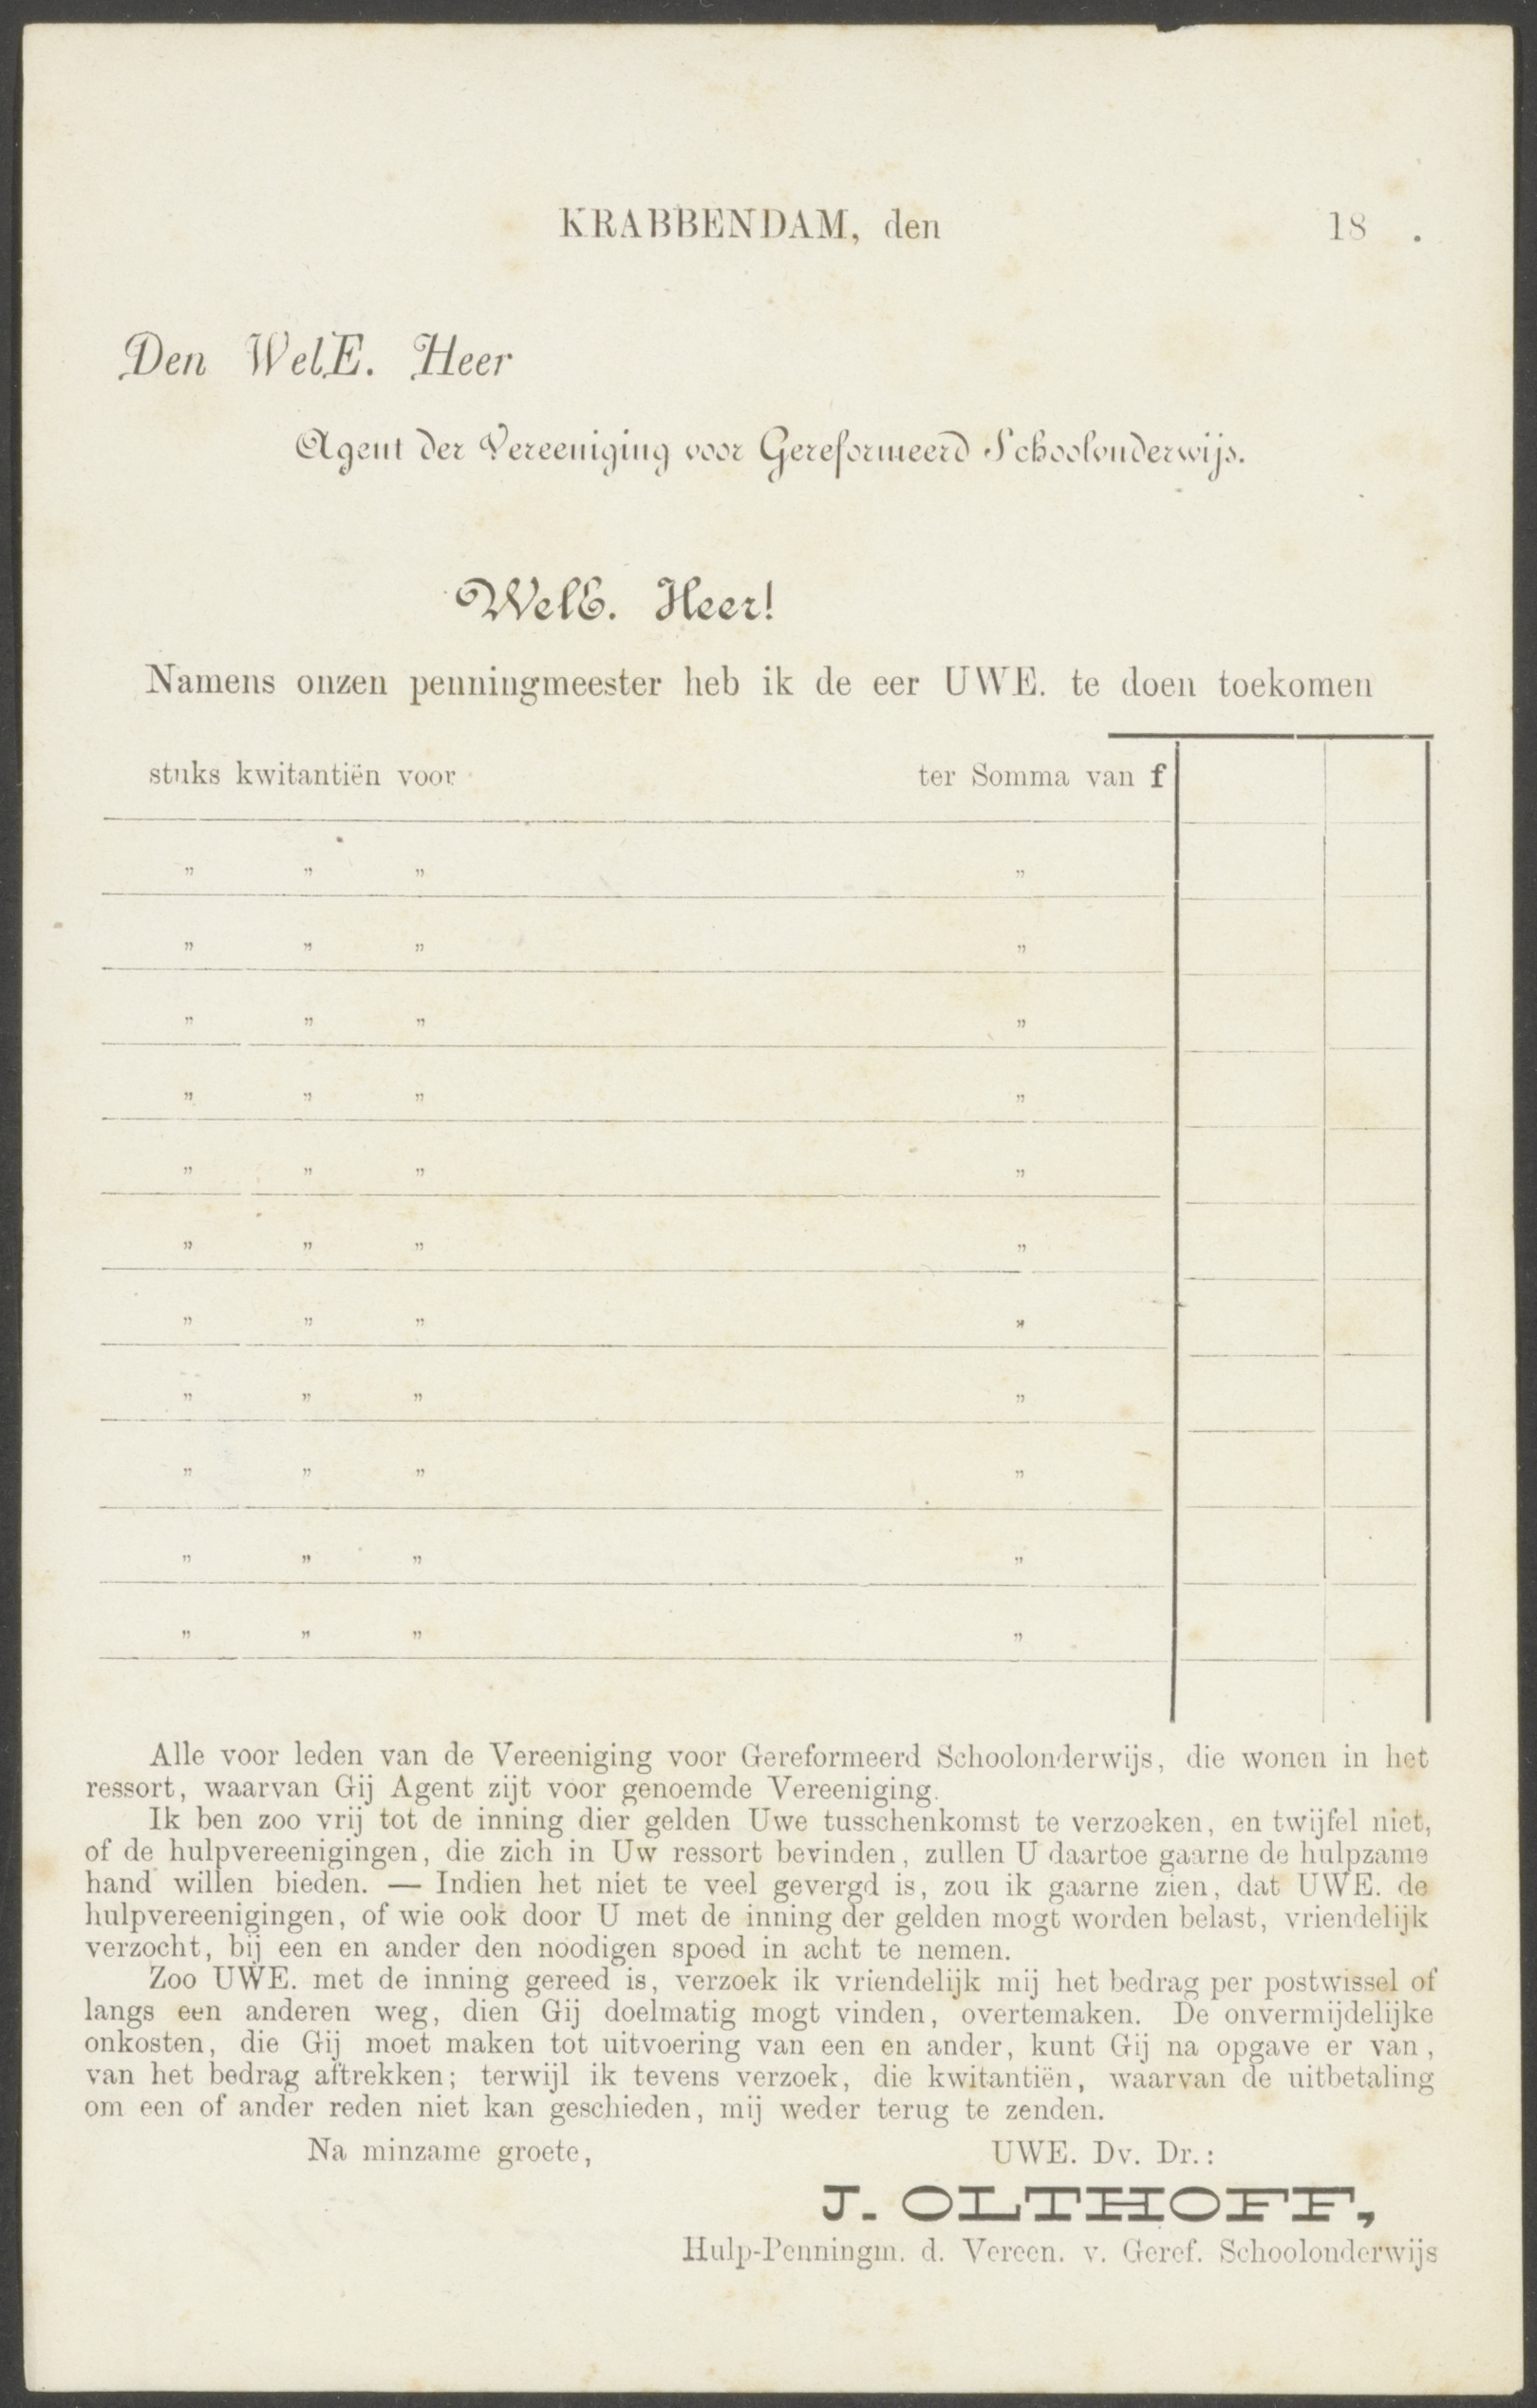 KRABBENDAM, den 18 .
Den WelE. Heer
Agent der Vereeniging voor Gereformeerd Schoolonderwijs.
WelE. Heer!
Namens onzen penningmeester heb ik de eer UWE. te doen toekomen
stuks kwitantiën voor ter Somma van f
" " " "
" " " "
" " " "
" " " "
" " " "
" " " "
" " " "
" " " "
" " " "
" " " "
" " " "
Alle voor leden van de Vereeniging voor Gereformeerd Schoolonderwijs, die wonen in het
ressort, waarvan Gij Agent zijt voor genoemde Vereeniging.
Ik ben zoo vrij tot de inning dier gelden Uwe tusschenkomst te verzoeken, en twijfel niet,
of de hulpvereenigingen, die zich in Uw ressort bevinden, zullen U daartoe gaarne de hulpzame
hand willen bieden. — Indien het niet te veel gevergd is, zou ik gaarne zien, dat UWE. de
hulpvereenigingen, of wie ook door U met de inning der gelden mogt worden belast, vriendelijk
verzocht, bij een en ander den noodigen spoed in acht te nemen.
Zoo UWE. met de inning gereed is, verzoek ik vriendelijk mij het bedrag per postwissel of
langs een anderen weg, dien Gij doelmatig mogt vinden, overtemaken. De onvermijdelijke
onkosten, die Gij moet maken tot uitvoering van een en ander, kunt Gij na opgave er van,
van het bedrag aftrekken; terwijl ik tevens verzoek, die kwitantiën, waarvan de uitbetaling
om een of ander reden niet kan geschieden, mij weder terug te zenden.
Na minzame groete, UWE. Dv. Dr.:
J. OLTHOFF,
Hulp-Penningm. d. Vereen. v. Geref. Schoolonderwijs